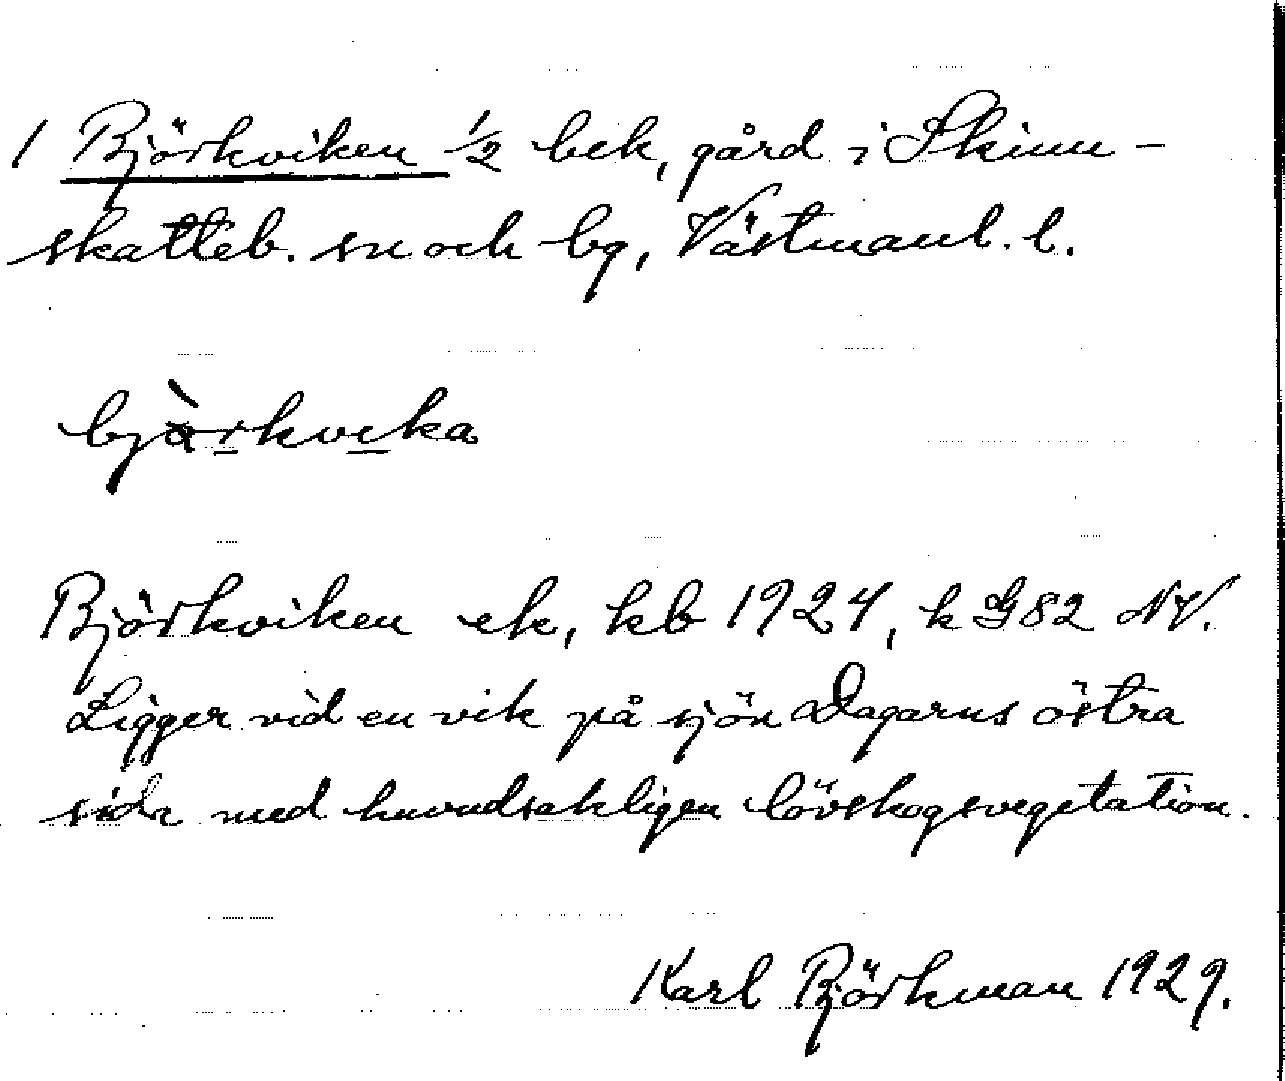 1 Björkviken 1/2 bek, gård i Skinn-
skatteb. sn och bg, Västmanl. l.
bjὰrkvika
Björkviken ek, kb 1924, k G82 NV.
Ligger vid en vik på sjön Dagarns östra
sida med huvudsakligen lövskogsvegetation.
Karl Björkman 1929.